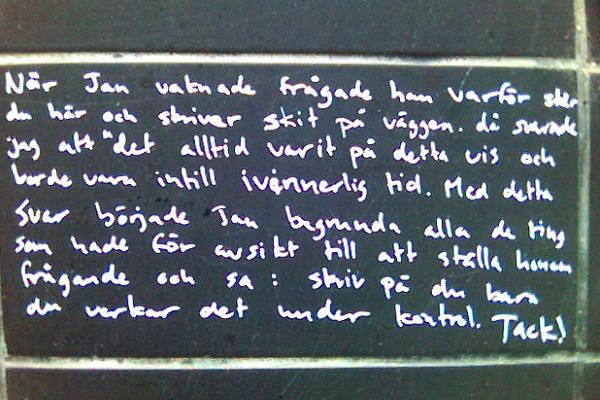 När Jan vaknade frågade han varför står
du här och skriver skit på väggen. då svarade
jag att "det alltid varit på detta vis och
borde vara intill ivännerlig tid. Med detta
svar började Jan begrunda alla de ting
som hade för avsikt till att ställa honom
frågande och sa: skriv på du bara
du verkar det under kontrol. Tack!